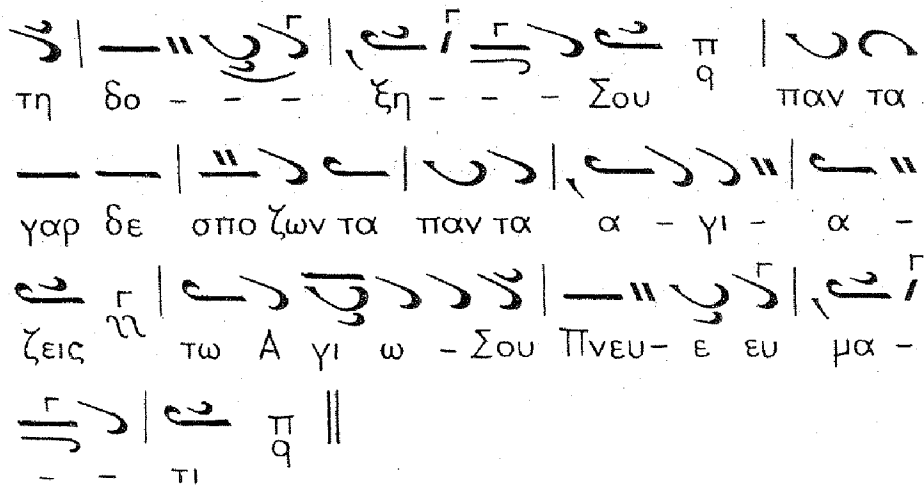 τη δο - - - ξη - - - Σου π q παν τα
γαρ δε σπο ζων τα παν τα α - γι - α -
ζεις τω Α γι ω - Σου Πνευ - ε ευ μα -
- - τι π q